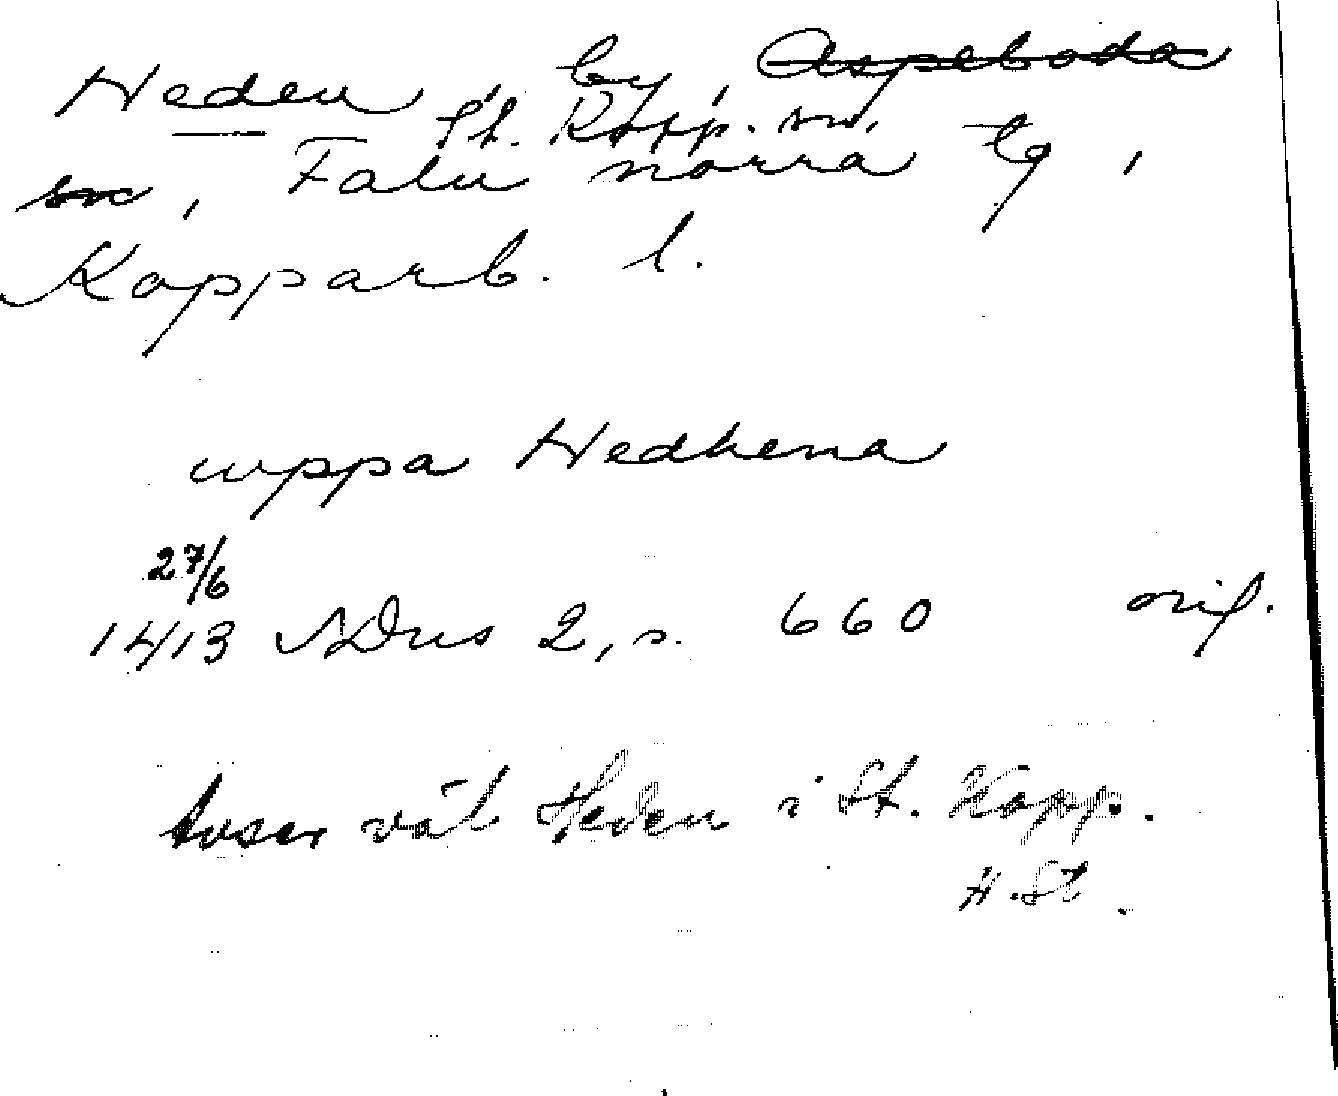 Heden, by, Aspeboda
St. Kopp. sn,
sn, Falu norra tg,
Kopparb. l.
uppa Hedhena
27/6
1413 NDns 2, s. 660 orig.
avser väl Heden i St. Kopp.
H. St.